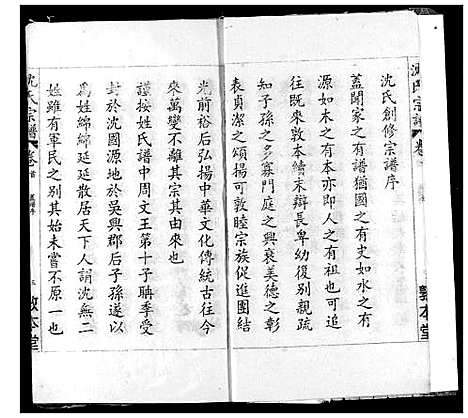 沈氏宗譜 卷首
沈氏創修宗譜序
蓋聞家之有譜猶國之有史如水之有
源如木之有本亦即人之有祖也可溯
往既來敦本續末辯長卑幼復別親疏
知子孫之多寡門庭之興衰美德之彰
表貞潔之頌揚可敦睦宗族促進團結
敦本堂
光前裕后弘揚中華文化傳統古往今
來萬變不離其宗其由來也
謹按姓氏譜中周文王第十子聃季受
封於沈國源地於吳興郡后子孫遂以
為姓綿綿延延散居天下人謂沈無二
姓雖有軍民之別其始未嘗不原一也
沈氏宗譜 卷首
敦本堂